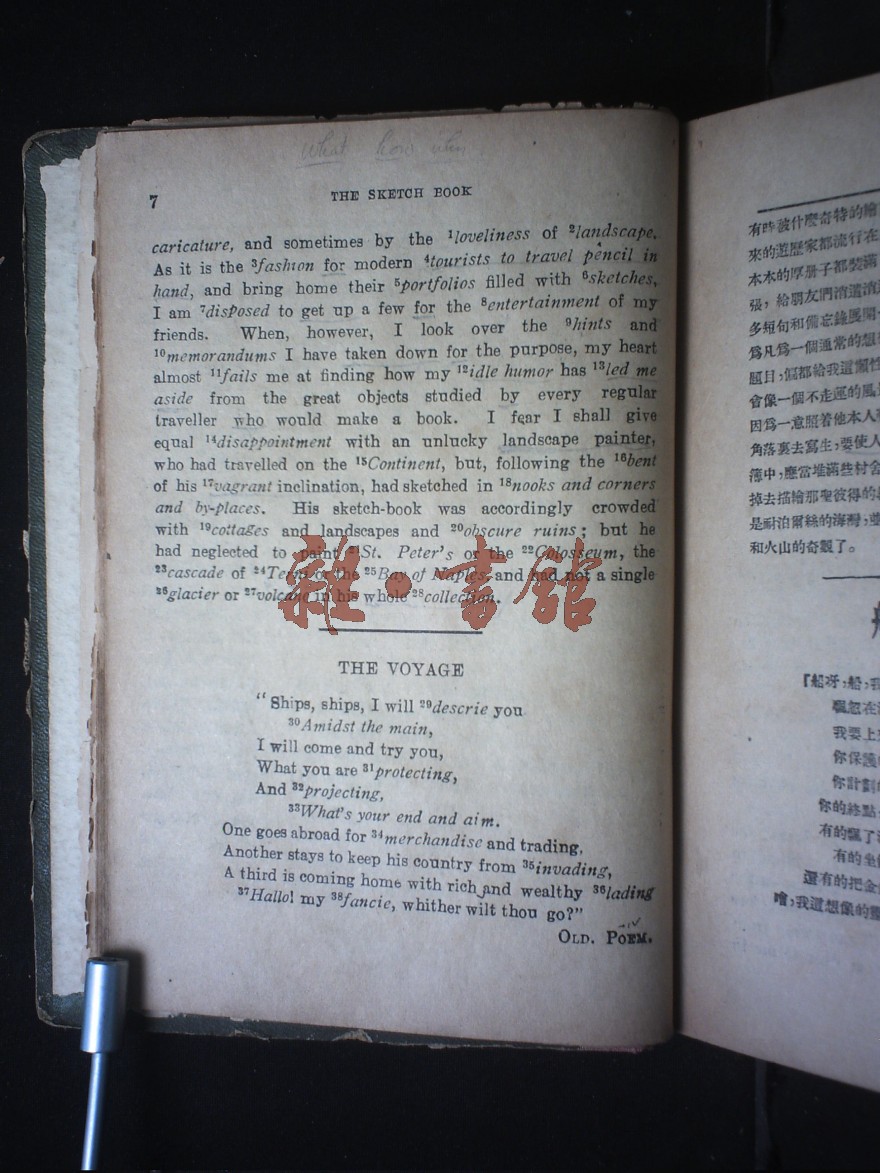 what how why
7
THE SKETCH BOOK
caricature, and sometimes by the ¹loveliness of ²landscape.
As it is the ³fashion for modern ⁴tourists to travel pencil in
hand, and bring home their ⁵portfolios filled with ⁶sketches,
I am ⁷disposed to get up a few for the ⁸entertainment of my
friends. When, however, I look over the ⁹hints and
¹⁰memorandums I have taken down for the purpose, my heart
almost ¹¹fails me at finding how my ¹²idle humor has ¹³led me
aside from the great objects studied by every regular
traveller who would make a book. I fear I shall give
equal ¹⁴disappointment with an unlucky landscape painter,
who had travelled on the ¹⁵Continent, but, following the ¹⁶bent
of his ¹⁷vagrant inclination, had sketched in ¹⁸nooks and corners
and by-places. His sketch-book was accordingly crowded
with ¹⁹cottages and landscapes and ²⁰obscure ruins; but he
had neglected to paint ²¹St. Peter's or the ²²Colosseum, the
²³cascade of ²⁴Terni or the ²⁵Bay of Naples, and had not a single
²⁶glacier or ²⁷volcano in his whole ²⁸collection.
雜·書館
THE VOYAGE
"Ships, ships, I will ²⁹descrie you
³⁰Amidst the main,
I will come and try you,
What you are ³¹protecting,
And ³²projecting,
³³What's your end and aim.
One goes abroad for ³⁴merchandise and trading,
Another stays to keep his country from ³⁵invading,
A third is coming home with rich and wealthy ³⁶lading
³⁷Hallo! my ³⁸fancie, whither wilt thou go?"
OLD. POEM.
有時被什麼奇特的繪
來的遊歷家都流行在
本木的厚册子都裝滿
張，給朋友們消遣消遣
多短句和備忘錄展開
爲凡爲一個通常的想
題目，偏都給我這懶性
會像一個不走運的風
因爲一意照着他本人
角落裏去寫生；要使人
簿中，應當堆滿些村舍
掉去描繪那聖彼得的
是耐泊爾絲的海灣，並
和火山的奇觀了。
「船呀，船，我
飄忽在
我要上
你保護
你計劃
你的終點
有的飄了
有的坐
還有的把金
嗆，我這想像的